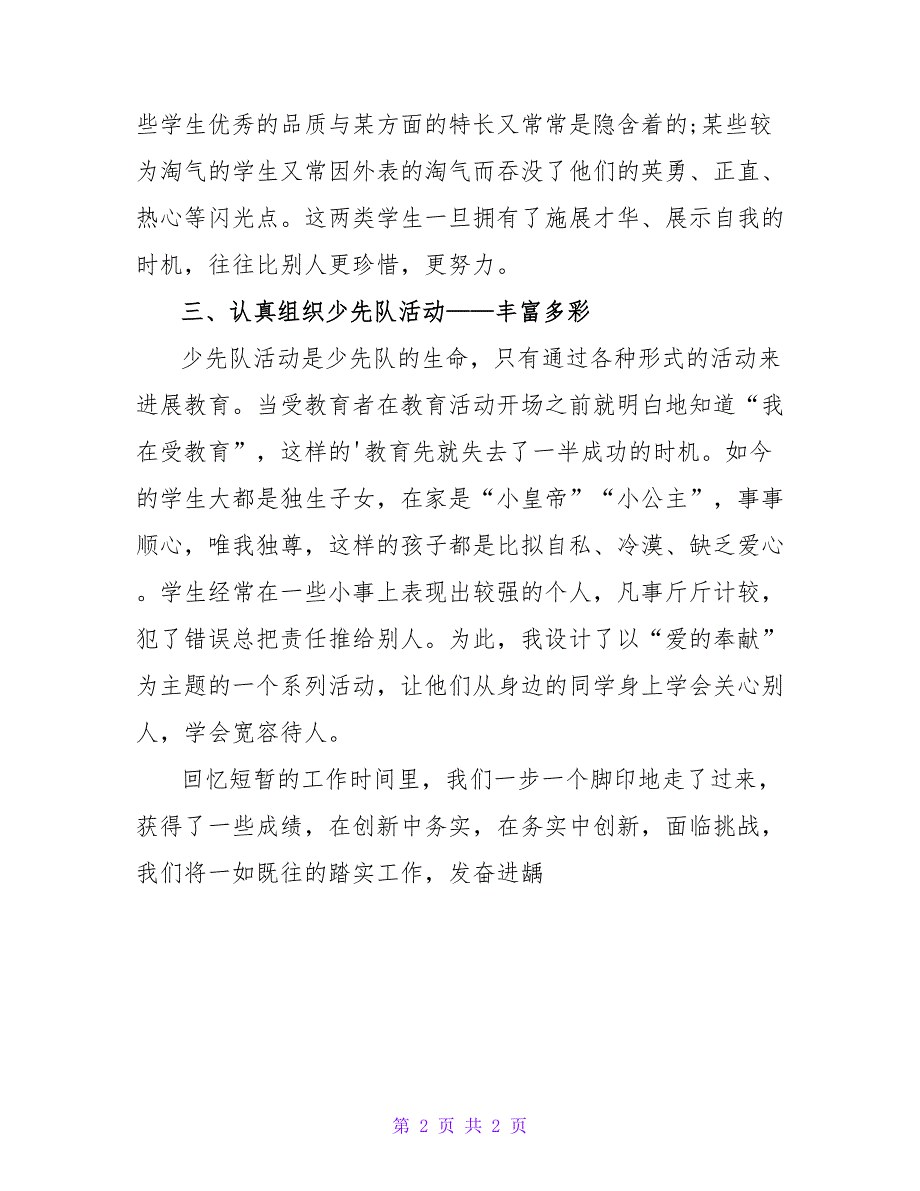 些学生优秀的品质与某方面的特长又常常是隐含着的;某些较
为淘气的学生又常因外表的淘气而吞没了他们的英勇、正直、
热心等闪光点。这两类学生一旦拥有了施展才华、展示自我的
时机，往往比别人更珍惜，更努力。
三、认真组织少先队活动——丰富多彩
少先队活动是少先队的生命，只有通过各种形式的活动来
进展教育。当受教育者在教育活动开场之前就明白地知道“我
在受教育”，这样的'教育先就失去了一半成功的时机。如今
的学生大都是独生子女，在家是“小皇帝”“小公主”，事事
顺心，唯我独尊，这样的孩子都是比拟自私、冷漠、缺乏爱心
。学生经常在一些小事上表现出较强的个人，凡事斤斤计较，
犯了错误总把责任推给别人。为此，我设计了以“爱的奉献”
为主题的一个系列活动，让他们从身边的同学身上学会关心别
人，学会宽容待人。
回忆短暂的工作时间里，我们一步一个脚印地走了过来，
获得了一些成绩，在创新中务实，在务实中创新，面临挑战，
我们将一如既往的踏实工作，发奋进龋
第 2 页 共 2 页